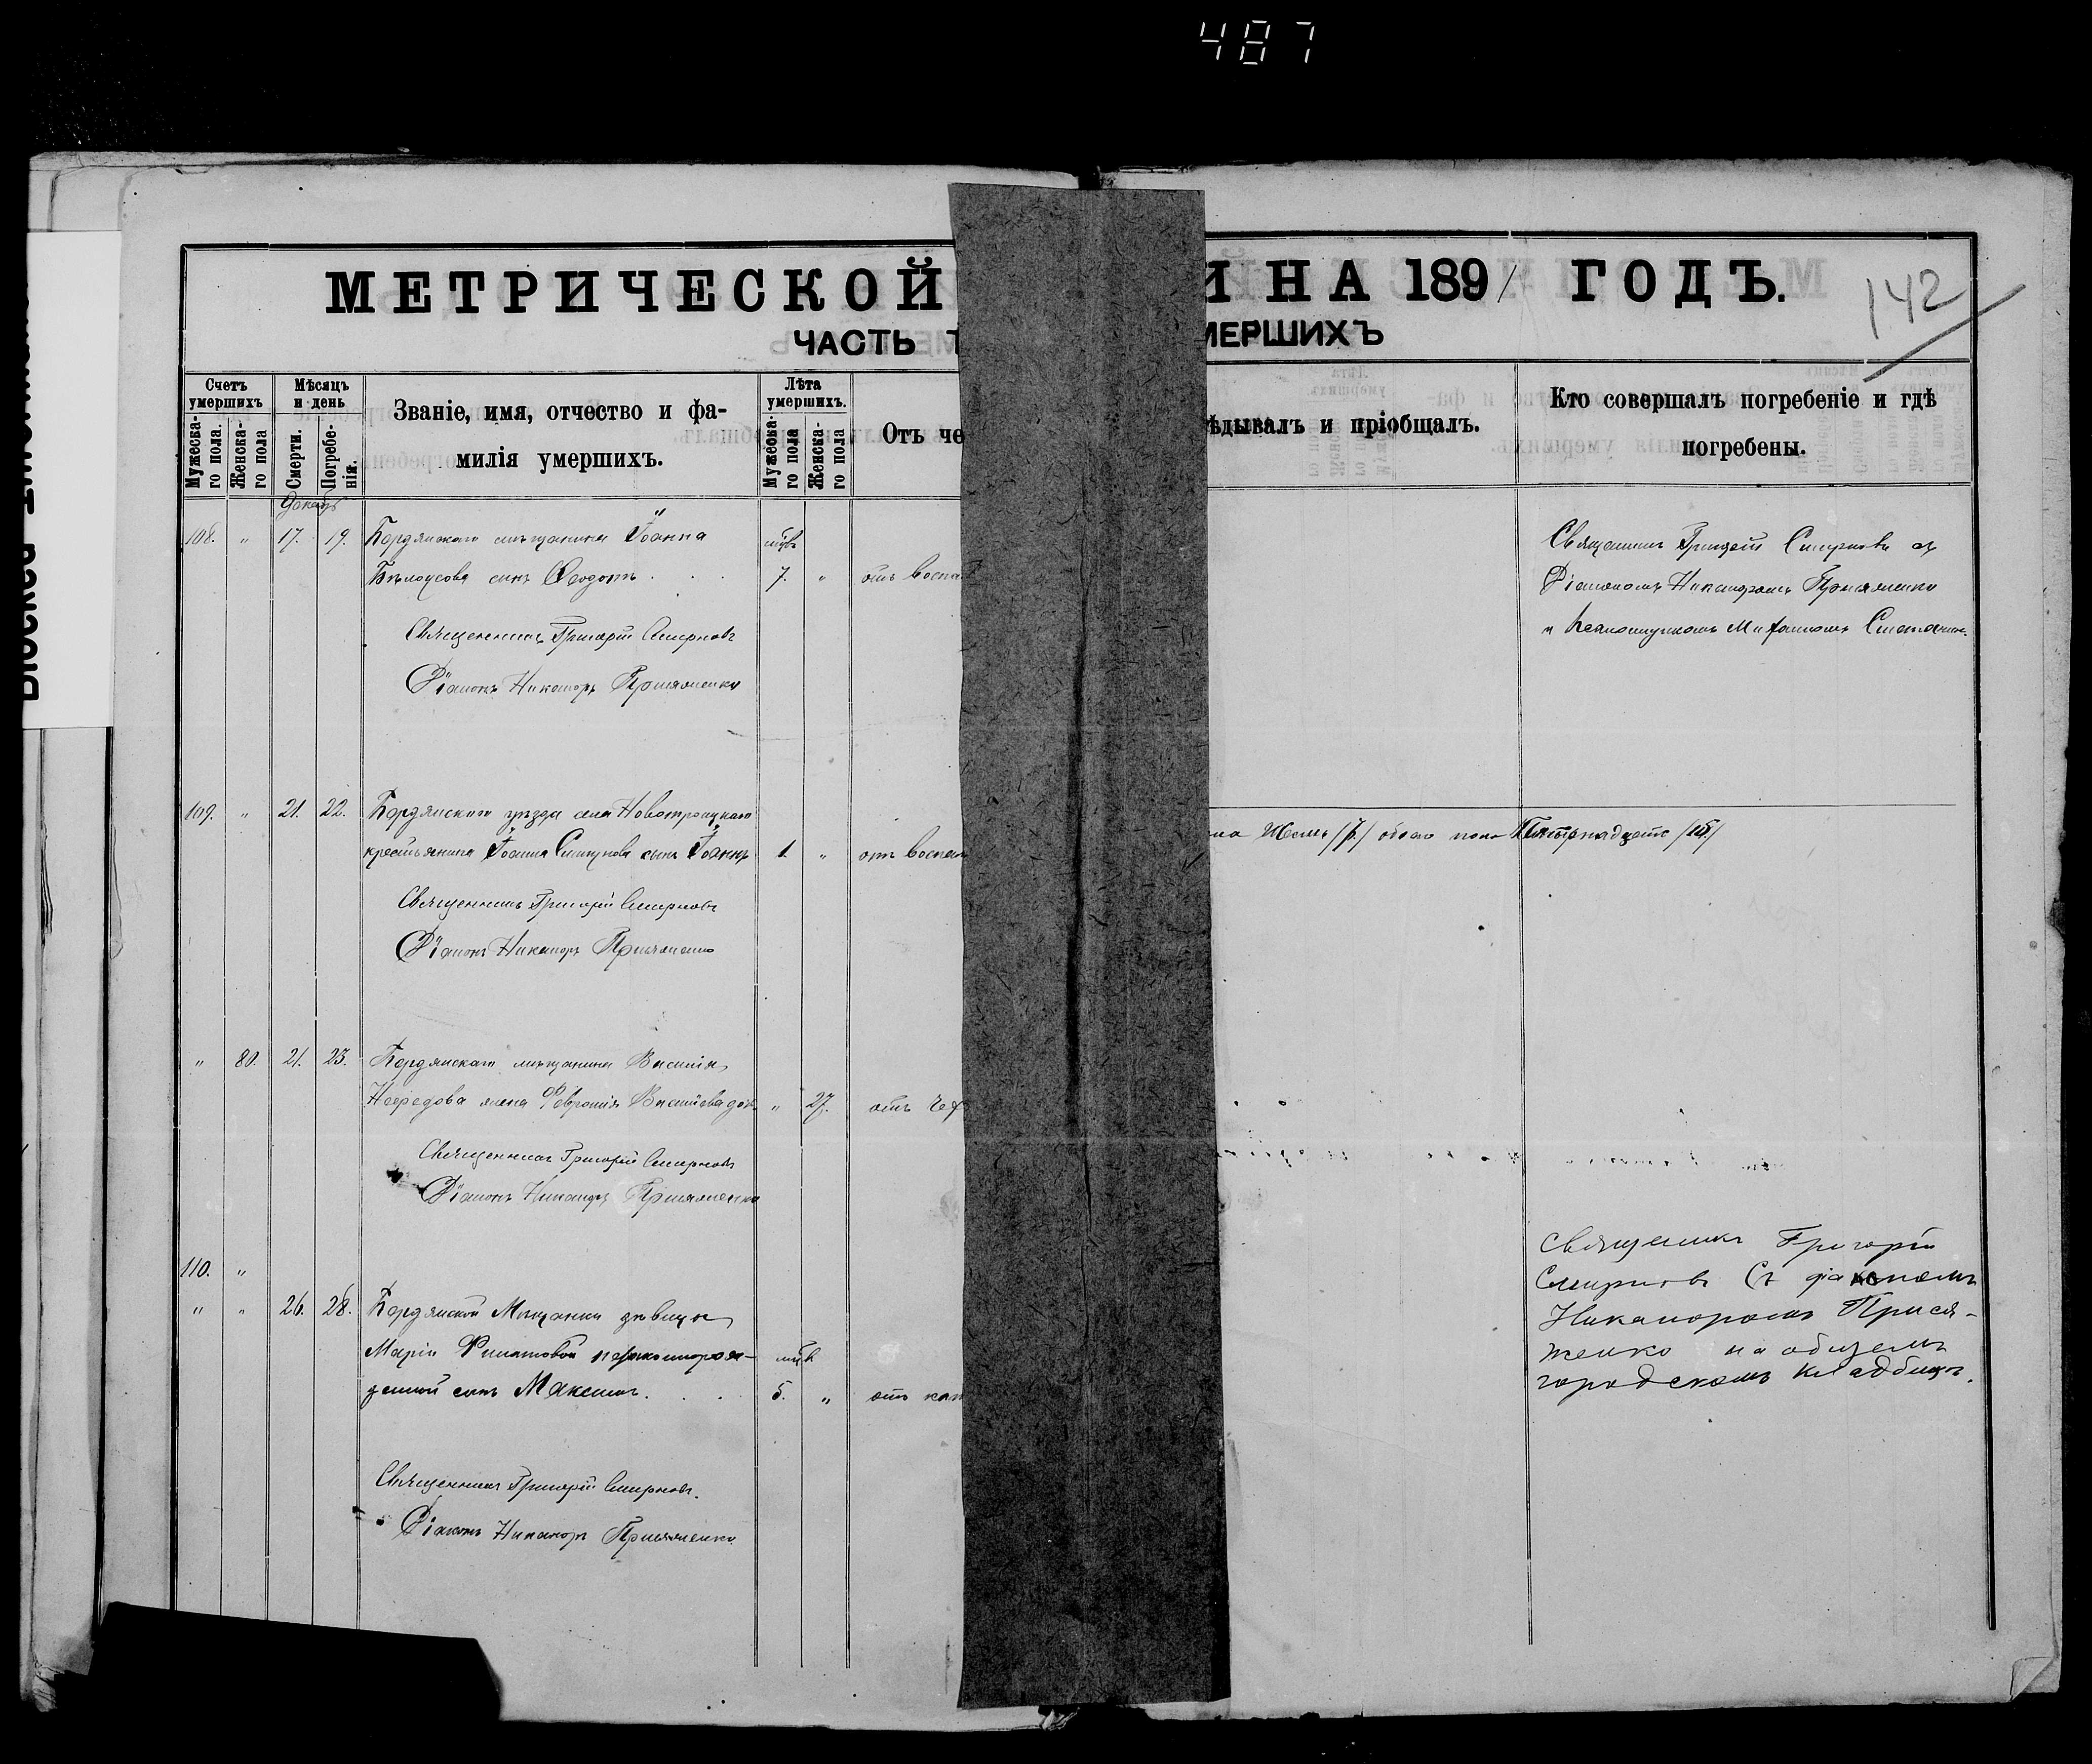 487
МЕТРИЧЕСКОЙ И НА 1891 ГОДЪ.
142
ЧАСТЬ Т МЕРШИХЪ
Счетъ умершихъ
Мужеска-го пола.
Женска-го пола
Мѣсяцъ и день
Смерти.
Погребе-нія.
Званіе, имя, отчество и фа-
милія умершихъ.
Лѣта умершихъ.
Мужеска-го пола
Женска-го пола
Отъ че
ѣдывалъ и пріобщалъ.
Кто совершалъ погребеніе и гдѣ
погребены.
Декабр
108. " 17. 19. Бердянскаго мѣщанина Іоанна
Бѣлоусова сынъ Ѳеодотъ . . . 7. " отъ воспа
Священникъ Григорій Смирновъ
Діаконъ Никаноръ Присяженко
Священникъ Григорій Смирновъ съ
Діакономъ Никаноромъ Присяженко
и Псаломщикомъ
109. " 21. 22. Бердянскаго уѣзда села Новотроицкаго
крестьянина Іоанна сынъ Іоаннъ 1. " отъ воспал
Священникъ Григорій Смирновъ
Діаконъ Никаноръ Присяженко
обоего пола
" 80. 21. 23. Бердянскаго мѣщанина Василія
жена Февронія " 27. отъ
Священникъ Григорій Смирновъ
Діаконъ Никаноръ Присяженко
110. "
" " 26. 28. Бердянской Мѣщанки дѣвицы
Маріи незаконнорож-
денный сынъ Максимъ . . . 5. " отъ
Священникъ Григорій Смирновъ.
Діаконъ Никаноръ Присяженко
Священникъ Григорій
Смирновъ Съ діакономъ
Никаноромъ Прися-
женко на общемъ
городскомъ кладбищѣ.